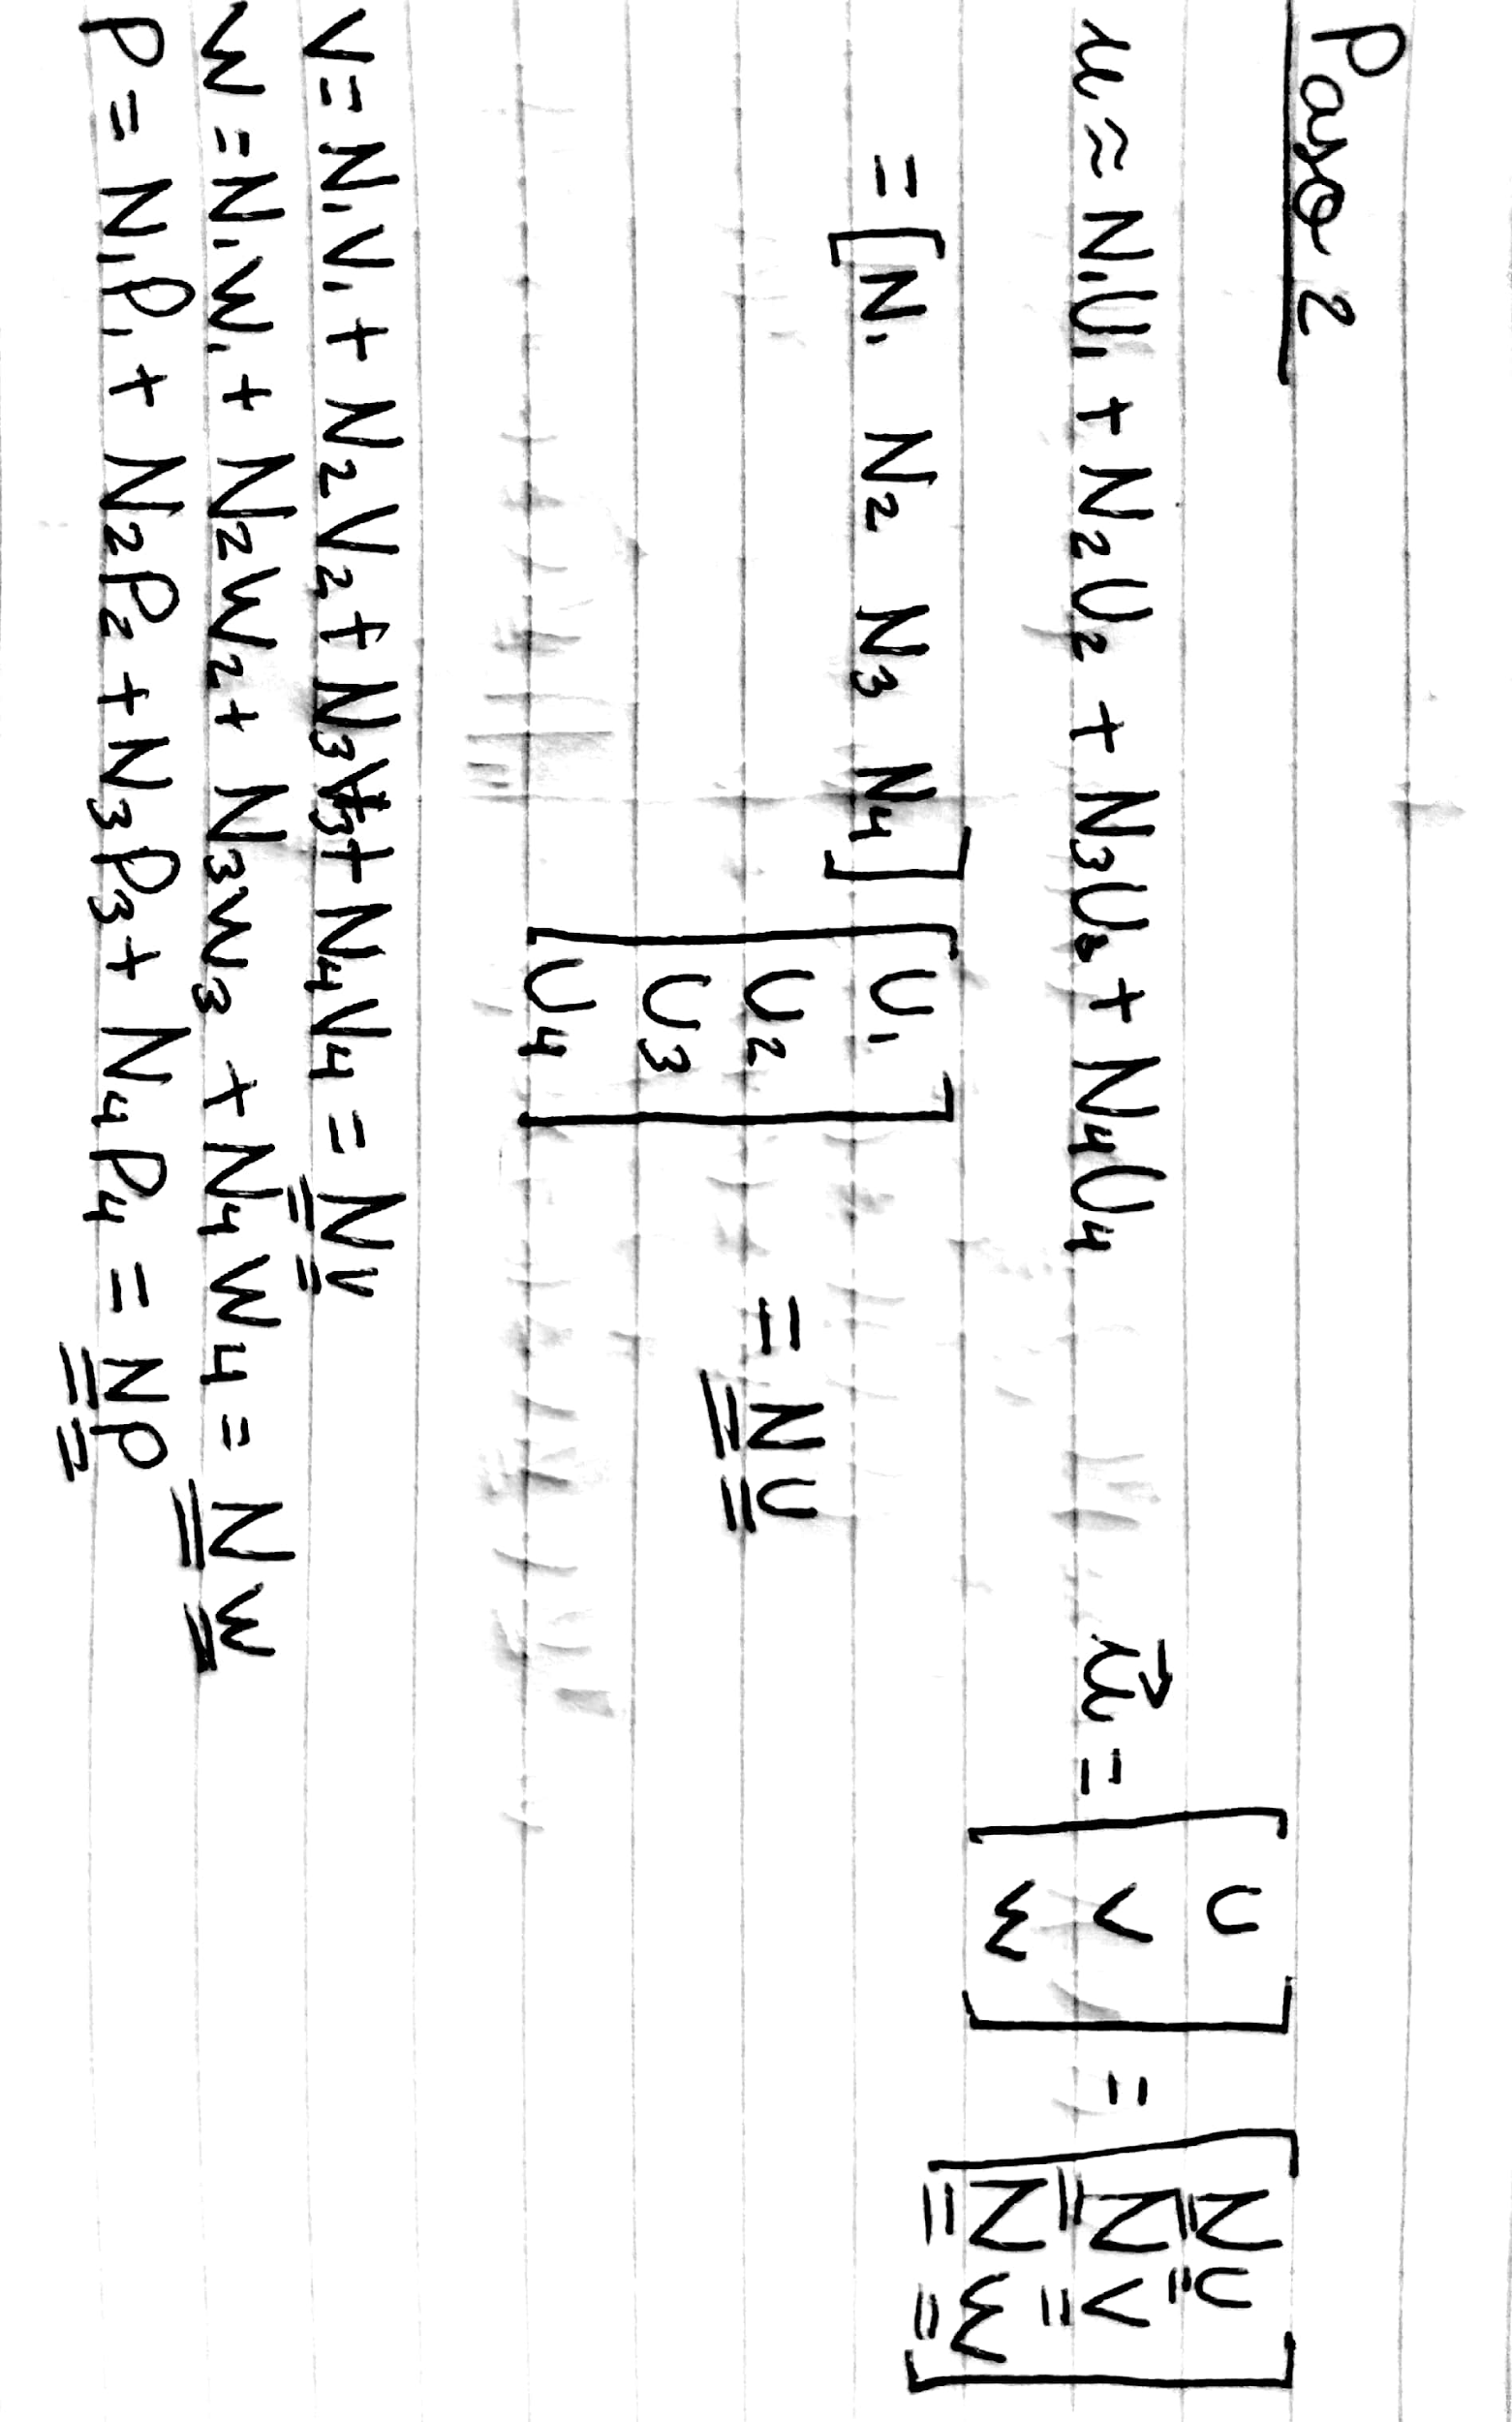 Paso 2
u ≈ N₁U₁ + N₂U₂ + N₃U₃ + N₄U₄
u⃗ = [U V W] = [N̳U̳ N̳V̳ N̳W̳]
= [N₁ N₂ N₃ N₄] [U₁ U₂ U₃ U₄] = N̳U̳
V = N₁V₁ + N₂V₂ + N₃V₃ + N₄V₄ = N̳V̳
W = N₁W₁ + N₂W₂ + N₃W₃ + N₄W₄ = N̳W̳
P = N₁P₁ + N₂P₂ + N₃P₃ + N₄P₄ = N̳P̳